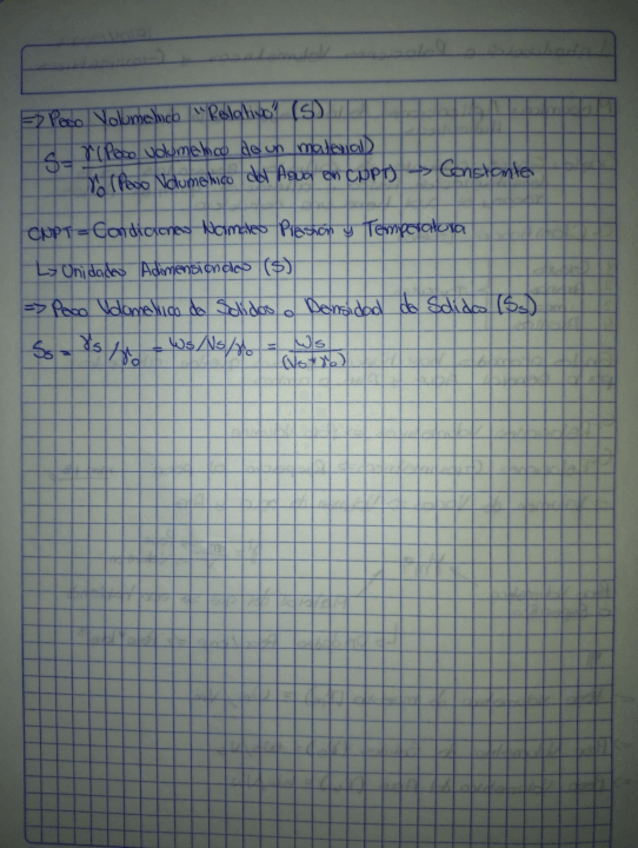 => Peso Volumetrico "Relativo" (S)
S = γ (Peso volumetrico de un material)
γo (Peso Volumetrico del Agua en CNPT) → Constante
CNPT = Condiciones Normales Presion y Temperatura
↳ Unidades Adimensionales (S)
=> Peso Volumetrico de Solidos o Densidad de Solidos (Ss)
Ss = γs/γo = Ws/Vs/γo = Ws
(Vs * γo)